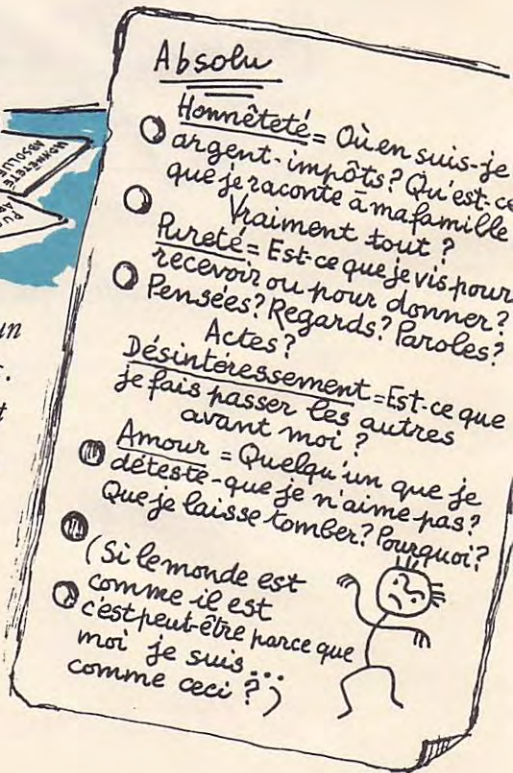 Absolu
Honnêteté = Où en suis-je
argent-impôts? Qu'est-ce
que je raconte à ma famille
Vraiment tout?
Pureté = Est-ce que je vis pour
recevoir ou pour donner?
Pensées? Regards? Paroles?
Actes?
Désintéressement = Est-ce que
je fais passer les autres
avant moi?
Amour = Quelqu'un que je
déteste - que je n'aime pas?
Que je laisse tomber? Pourquoi?
(Si le monde est
comme il est
c'est peut-être parce que
moi je suis...
comme ceci?)
HONNÊTETÉ
ABSOLUE
un